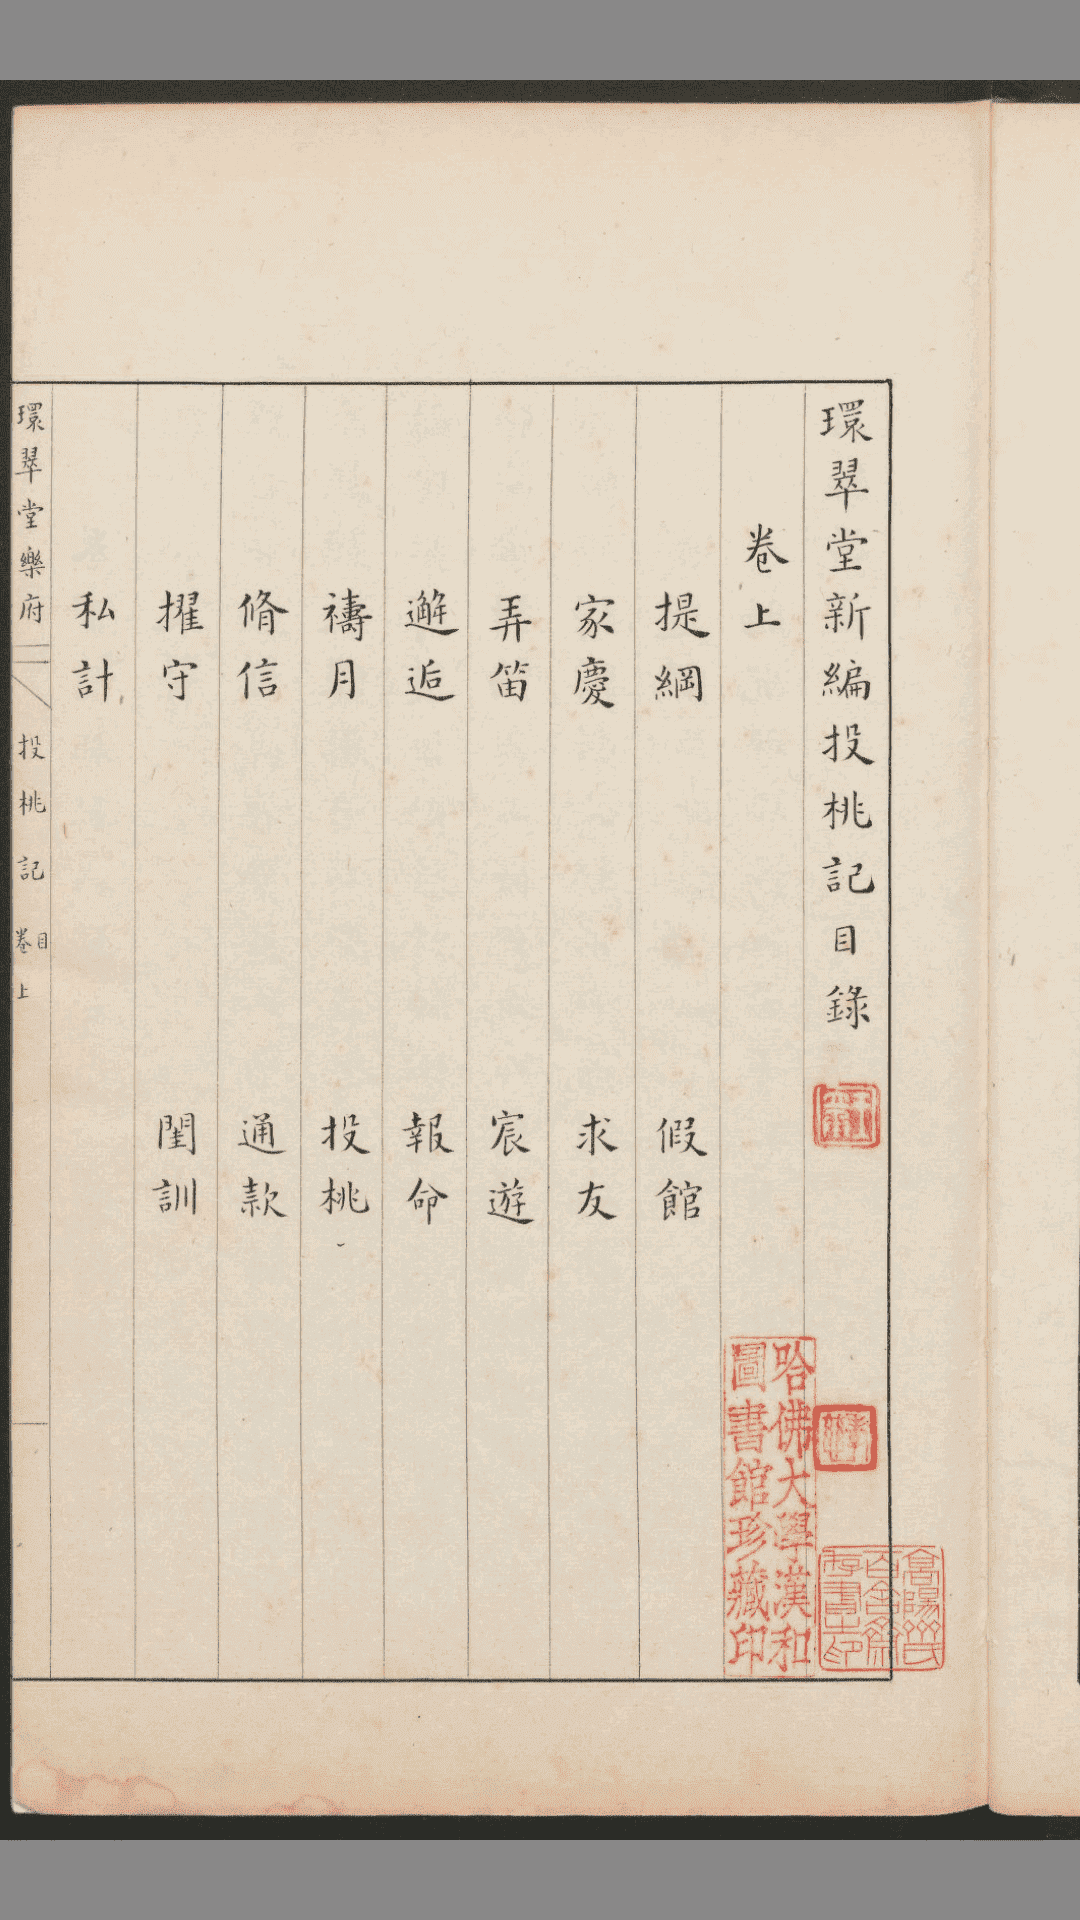 環翠堂新編投桃記目錄
卷上
提綱　假館
家慶　求友
弄笛　宸遊
邂逅　報命
禱月　投桃
脩信　通款
擢守　閨訓
私計
環翠堂樂府　投桃記　卷上　目
哈佛大學漢和
圖書館珍藏印